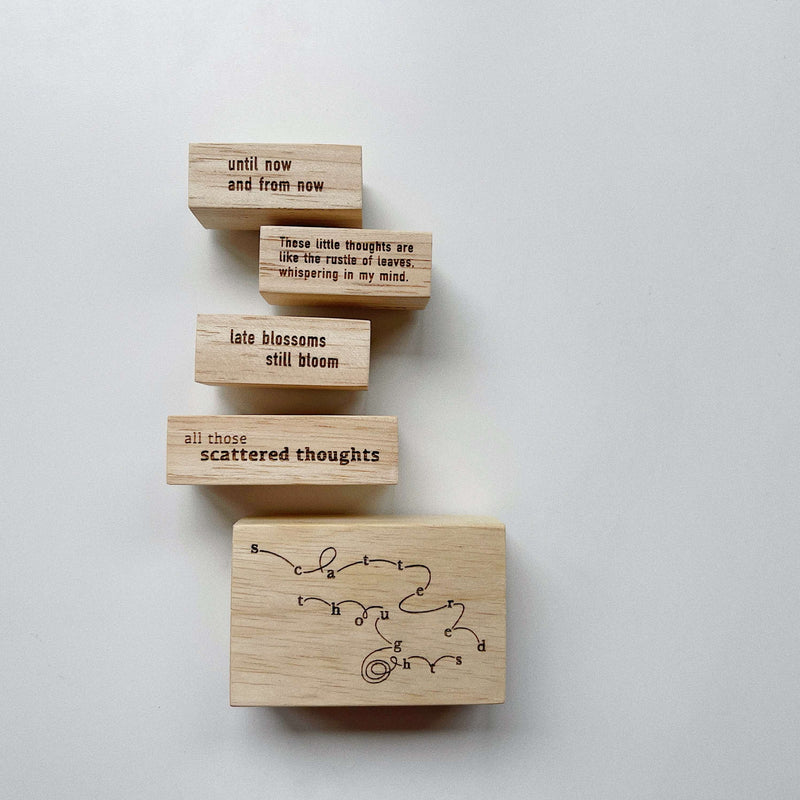 until now
and from now
These little thoughts are
like the rustle of leaves,
whispering in my mind.
late blossoms
still bloom
all those
scattered thoughts
scattered
thoughts